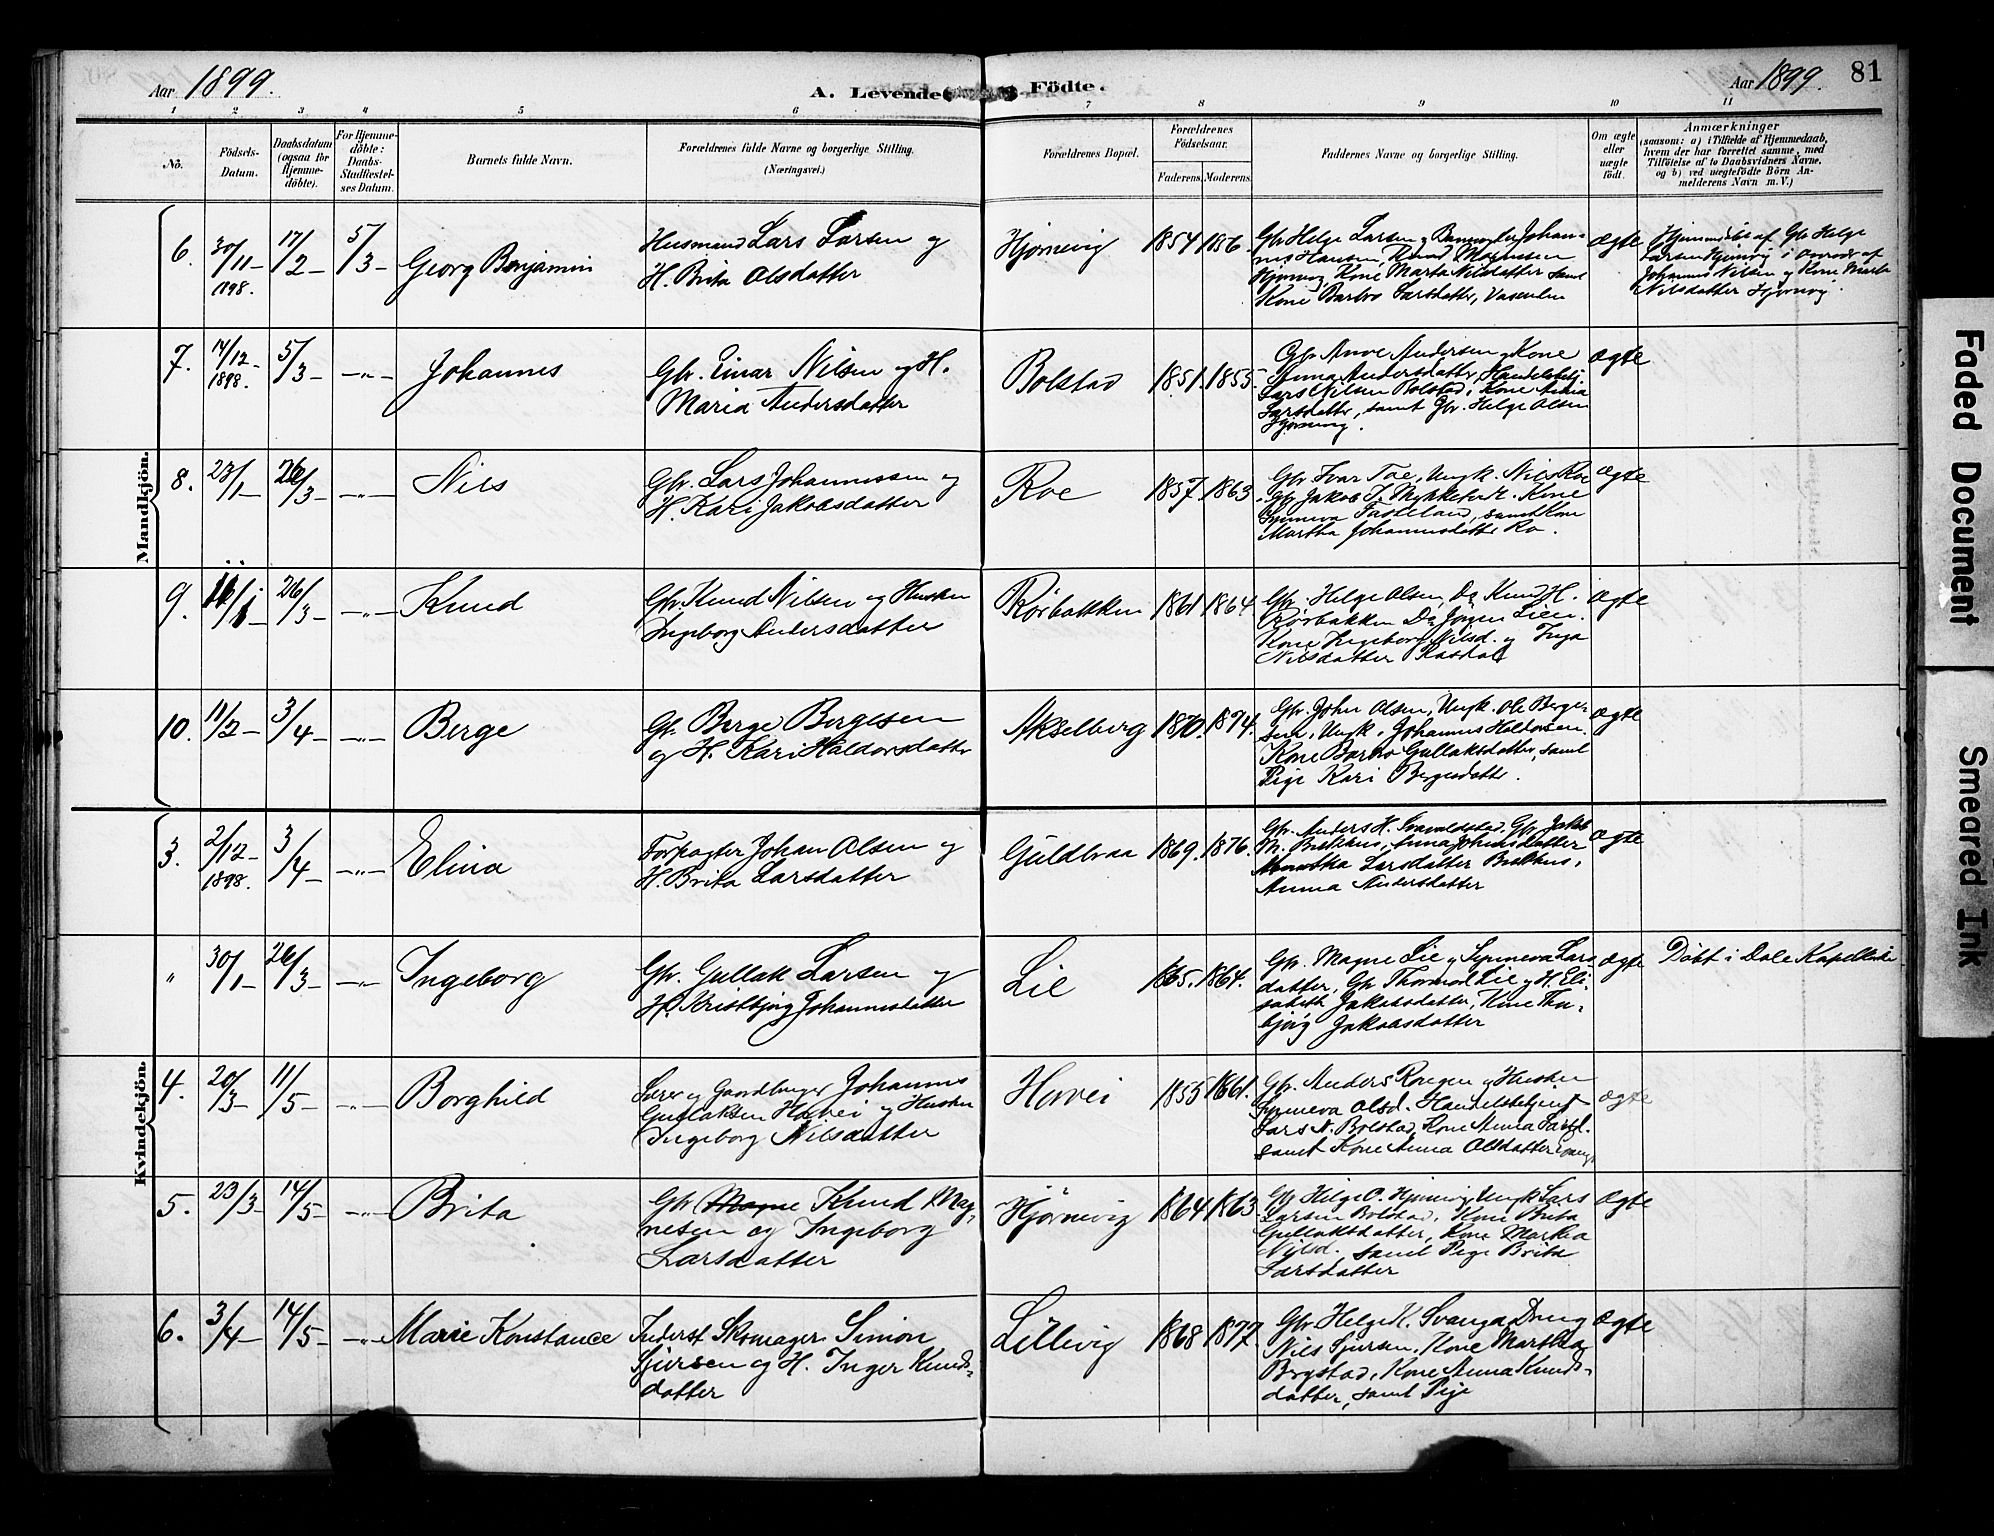 Aar 1899. A. Levende Födte. Aar 1899. 81
1 2 3 4 5 6 7 8 9 10 11
No. Födsels-Datum. Daabsdatum (ogsaa for Hjemmedöbte). For Hjemmedöbte: Daabs-Stadfæstelses Datum. Barnets fulde Navn. Forældrenes fulde Navne og borgerlige Stilling. (Næringsvei.) Forældrenes Bopæl. Forældrenes Födselsaar. Faderens. Moderens. Faddernes Navne og borgerlige Stilling. Om ægte eller uægte födt. Anmærkninger (saasom: a) i Tilfælde af Hjemmedaab, hvem der har forrettet samme, med Tilföielse af to Daabsvidners Navne, og b) ved uægtefödte Börn Anmelderens Navn m. V.)
Mandkjön.
6. 30/11 1898. 17/2 5/3 Georg Benjamin
Husmand Lars Larsen og
H. Brita Olsdatter
Hjørnevig 1854 186
Gbr Helge Larsen, Johan-
nes Hansen, Knud Magnussen
Hjørnevig, Kone Marta Nilsdatter samt
Kone Barbro Larsdatter,
ægte
Hjemmedöbt af Gbr Helge
Larsen Hjørnevig i Overvær af
Johannes Nilsen og Kone Marta
Nilsdatter Hjørnevig.
7. 14/12 1898. 5/3 -"- Johannes
Gbr. Einar Nilsen og H.
Maria Andersdatter
Bolstad 1851. 1855.
Gbr Andersen, Kone
Anna Andersdatter, Handelsbetj.
Lars Nilsen Bolstad, Kone Anna
Larsdatter, samt Gbr. Helge Olsen
Hjørnevig.
ægte
8. 23/1 26/3 -"- Nils
Gbr. Lars Johannessen og
H. Kari Jakobsdatter
Roe 1857. 1863
Gbr Ivar Toe, Ungk. Nils Roe
Gbr Jakob Kone
Synneva samt Kone
Martha Johannesdatter Ro.
ægte
9. 26/3 -"- Knud
Gbr. Knud Nilsen og Hustru
Ingeborg Andersdatter
Rörbakken 1861 1864
Gbr. Helge Olsen, Do Knud H.
Rörbakken Do Jörgen Lien.
Kone Ingeborg Nilsd. og Inga
Nilsdatter Rasdal
ægte
10. 11/2 3/4 -"- Berge
Gbr. Berge Bergesen
og H. Kari Haldorsdatter
Akselberg 1870. 1874.
Gbr. John Olsen, Ungk. Ole Berge-
sen, Ungk. Johannes Haldorsen.
Kone Barbro Gullaksdatter, samt
Pige Kari Bergesdatter.
ægte
Kvindekjön.
3. 2/12 1898. 3/4 -"- Elina
Forpagter Johan Olsen og
H. Brita Larsdatter
Guldbraa 1869. 1876.
Gbr. Anders H. Gbr. Jakob
M. Anna Johansdatter
Martha Larsdatter
Anna Andersdatter
ægte
" 30/1 26/3 -"- Ingeborg
Gbr. Gullak Larsen og
H. Kristbjörg Johannesdatter
Lie 1865. 1864.
Gbr. Magne Lie og Synneva Lars
datter, Gbr Thormod Lie og H. Eli-
sabeth Jakobsdatter, Kone Tho-
björg Jakobsdatter
ægte
Döbt i Dale Kapelkirke
4. 20/3 11/5 -"- Borghild
Lærer og Gaardbruger Johannes
Gullaksen Horvei og Hustru
Ingeborg Nilsdatter
Horvei 1855 1861.
Gbr. Anders Rongen og Hustru
Synneva Olsd. Handelsbetjent
Lars N. Bolstad, Kone Anna Larsd.
samt Kone Anna Olsdatter
ægte
5. 23/3 14/5 -"- Brita
Gbr Magne Knud Mag-
nesen og Ingeborg
Larsdatter
Hjørnevig 1864 1863
Gbr Helge O. Hjørnevig, Ungk Lars
Larsen Bolstad, Kone Brita
Gullaksdatter, Kone Martha
Nilsd. samt Pige Brita
Larsdatter
ægte
6. 3/4 14/5 -"- Marie Konstance
Inderst Skomager Simon
Sjursen og H. Inger Knuds-
datter
Lillevig 1868 1877.
Gbr. Helge K. Svanga, Dreng
Nils Sjursen, Kone Martha
Brystad, Kone Anna Knuds-
datter, samt Pige
ægte
Faded Document
Smeared Ink